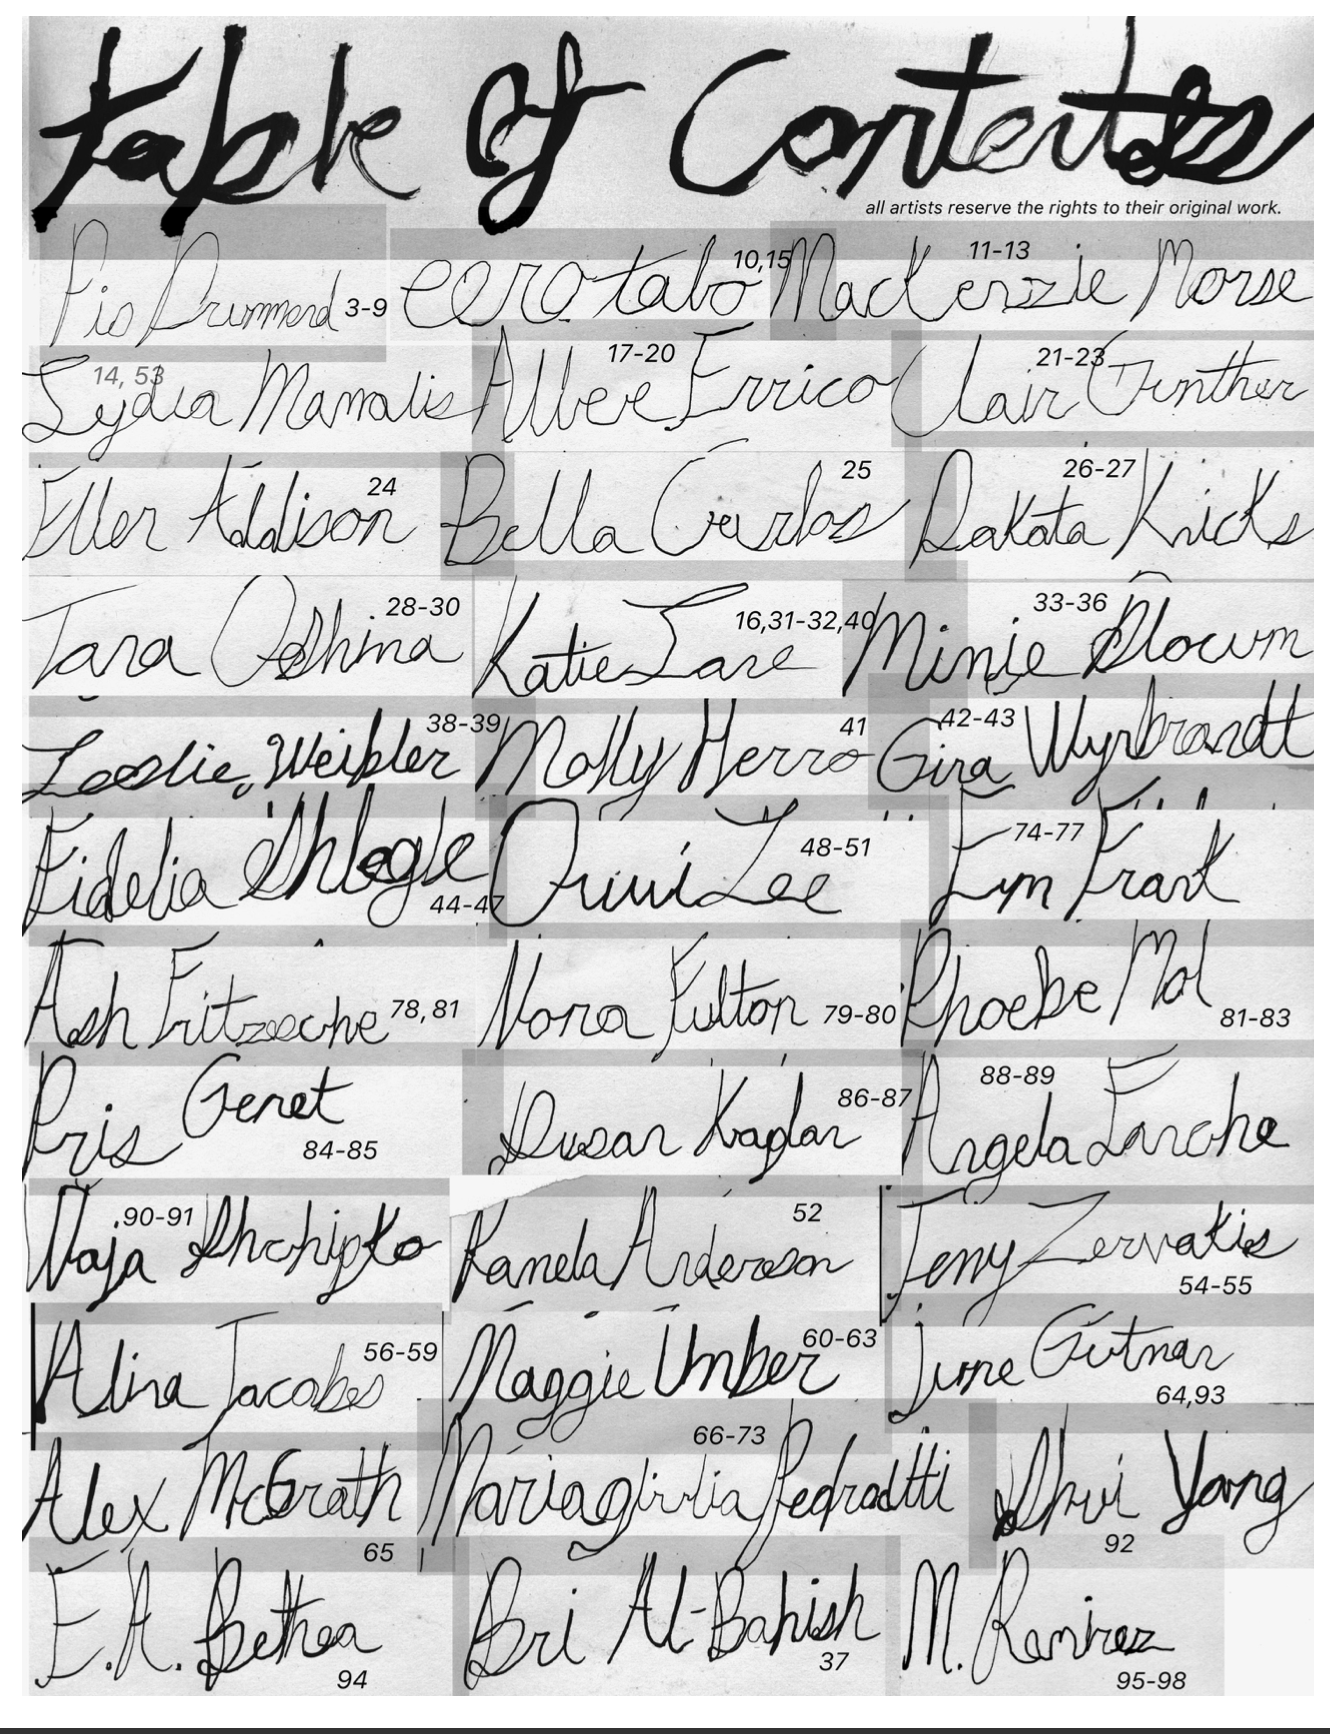 Table of Contents
all artists reserve the rights to their original work.
Pio Drummond 3-9 eero talo 10,15 MacKenzie Morse 11-13
Lydia Mamalis 14, 53 Albee Errico 17-20 Clair Gunther 21-23
Ellen Addison 24 Bella Carlos 25 Dakota Knicks 26-27
Tara Oshima 28-30 Katie Lane 16,31-32,40 Minie Slocum 33-36
Leslie Weibler 38-39 Molly Herro 41 Gina Wynbrandt 42-43
Fidelia 44-47 Lee 48-51 Frank 74-77
Ash Fritzsche 78,81 Nora Fulton 79-80 Phoebe Mol 81-83
Pris Genet 84-85 Susan Kaplan 86-87 Angela Fanche 88-89
90-91 Anderson 52 Zervakis 54-55
Alina Jacobs 56-59 Maggie Umber 60-63 June Gutman 64,93
Alex McGrath 65 Mariagiulia Pedrotti 66-73 Shui Yang 92
E.A. Bethea 94 Bri Al-Bahish 37 M. Ramirez 95-98